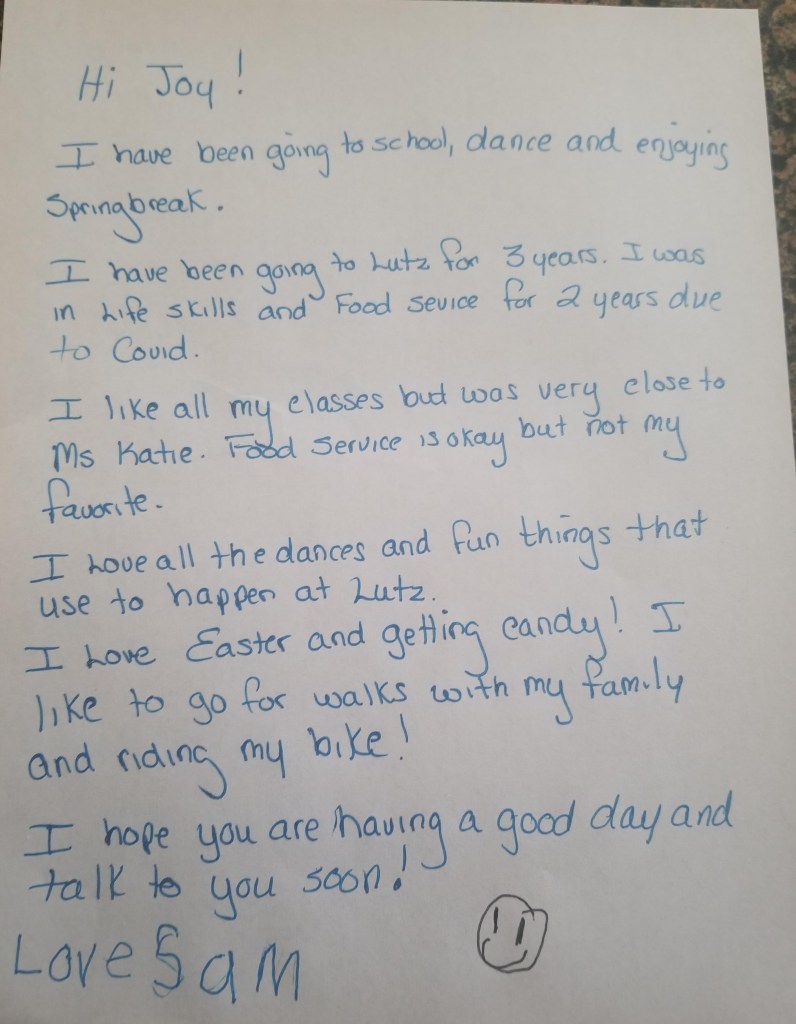 Hi Joy!
I have been going to school, dance and enjoying
Springbreak.
I have been going to Lutz for 3 years. I was
in Life skills and Food Sevice for 2 years due
to Covid.
I like all my classes but was very close to
Ms Katie. Food Service is okay but not my
favorite.
I Love all the dances and fun things that
use to happen at Lutz.
I Love Easter and getting candy! I
like to go for walks with my family
and riding my bike!
I hope you are having a good day and
talk to you soon!
Love Sam